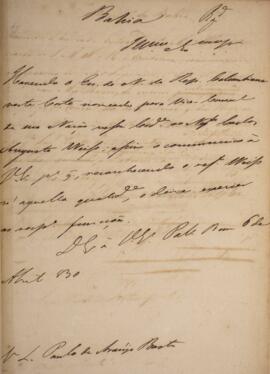 Bahia
Illmo e Exmo Snr
Havendo o En. de N. da Rep. Colombiana
nesta Corte nomeado para Vice Consul
da sua Nação nessa Cide ao Negte Carlos
Augusto Weiss: assim o communico á
V. Ex. pa q, reconhecendo o refo Weiss
n'aquella qualide, o deixe exercer
as respas funções.
D. G. á V. Ex. Pale Em 6 de
Abril 830
Sr L. Paulo de Araujo Basto